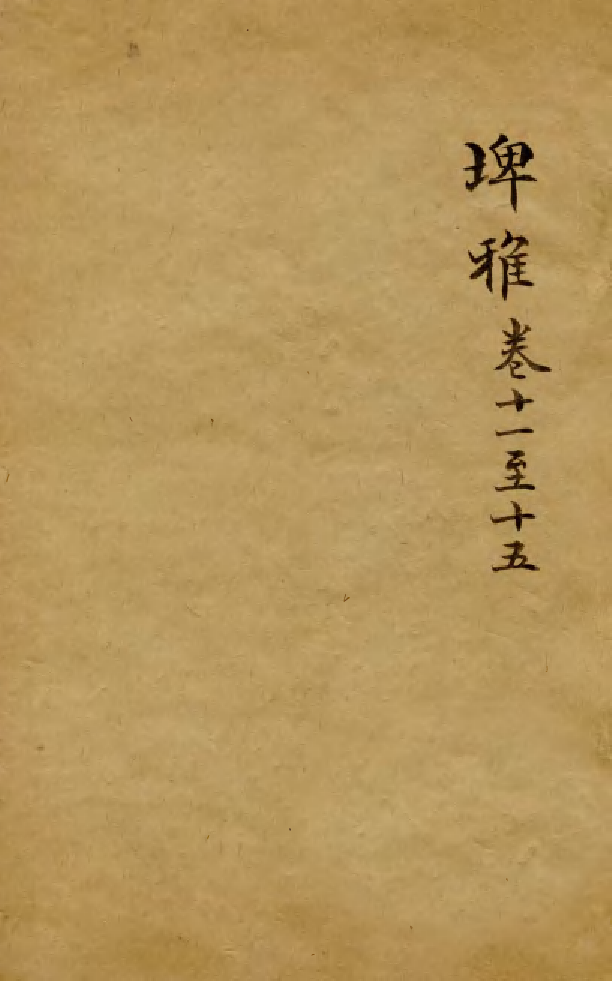 埤雅卷十一至十五